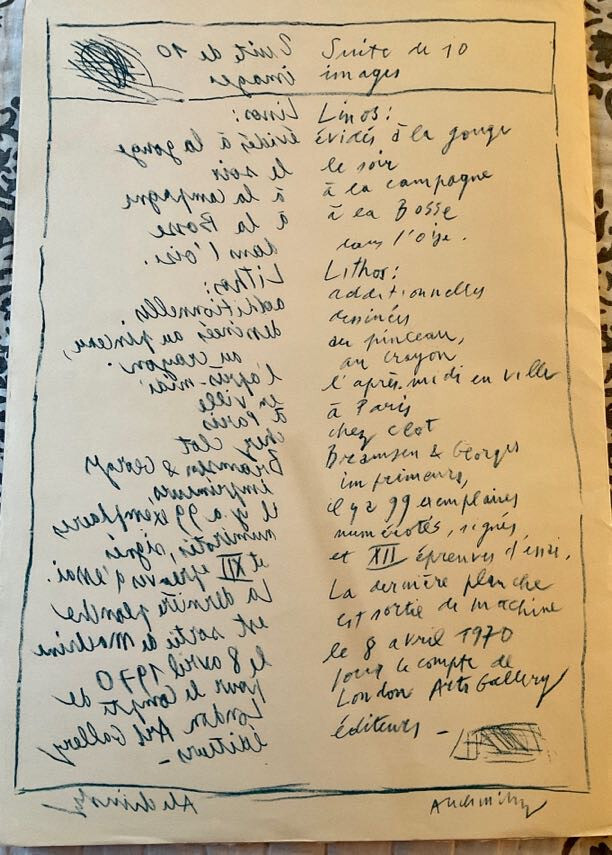 Suite de 10
images
Linos:
évidés à la gouge
le soir
à la campagne
à la Bosse
dans l'oise.
Lithos:
additionnelles
dessinées au pinceau,
au crayon
l'après-midi
en ville
à Paris
chez Clot
Bramsen & Georges
imprimeurs
il y a 99 exemplaires
numérotés, signés
et XII épreuves d'essai.
La dernière planche
est sortie de Machine
le 8 avril 1970
pour le Compte de
London Art Gallery
éditeurs -
Alechinsky
Suite de 10
images
Linos:
évidés à la gouge
le soir
à la campagne
à la Bosse
dans l'oise.
Lithos:
additionnelles
dessinés
au pinceau,
au crayon
l'après-midi en ville
à Paris
chez Clot
Bramsen & Georges
imprimeurs,
il y a 99 exemplaires
numérotés, signés,
et XII épreuves d'essai.
La dernière planche
est sortie de machine
le 8 avril 1970
pour le compte de
London Arts Gallery
éditeurs -
Alechinsky